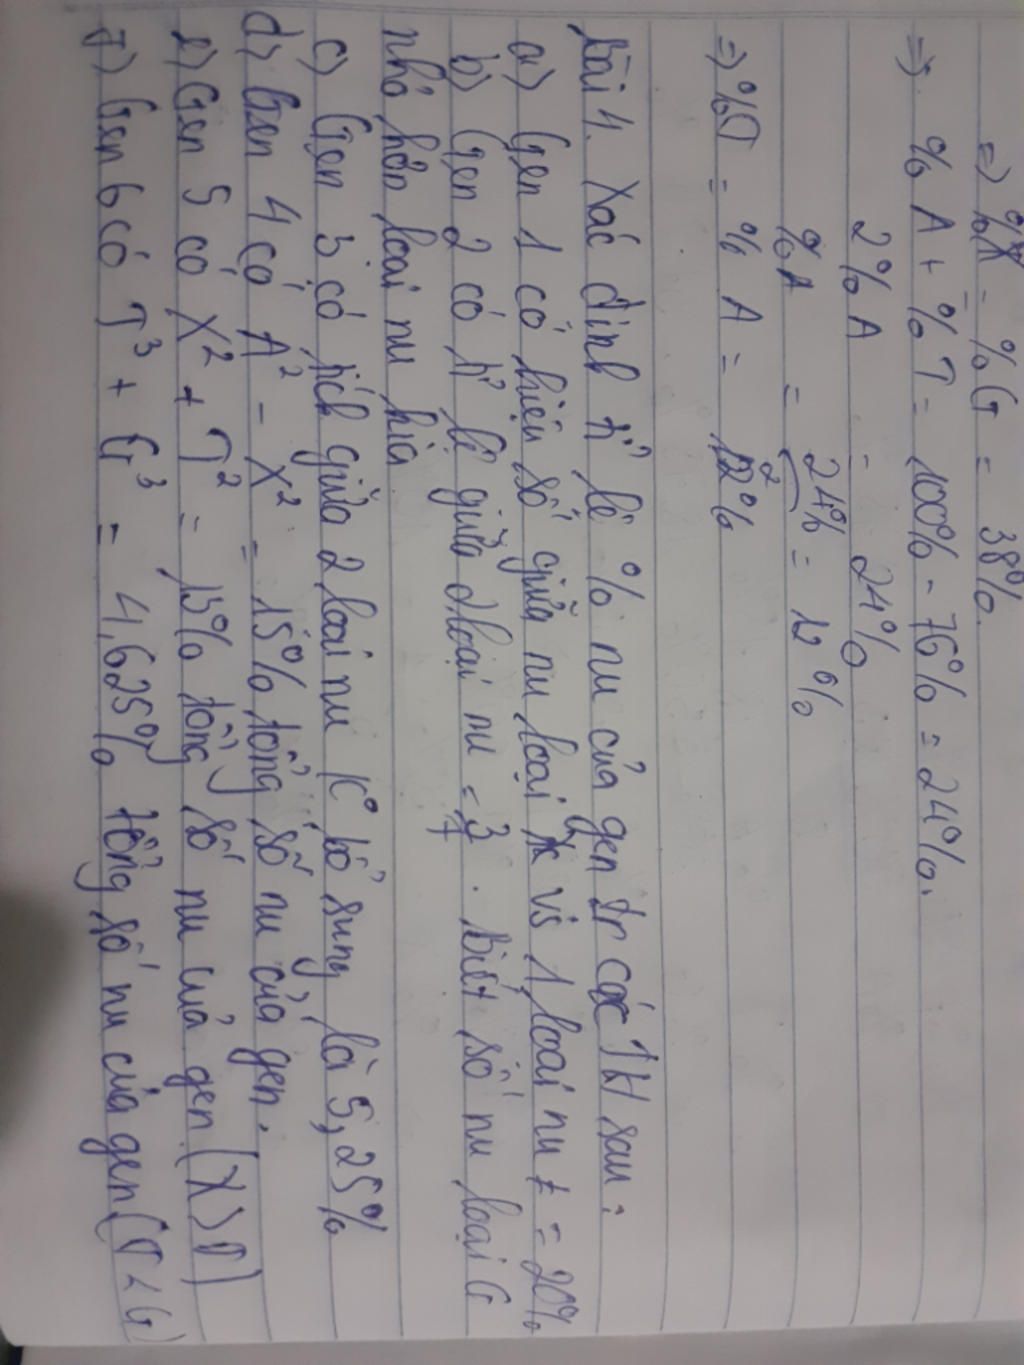 => %X = %G = 38%.
=> %A + %T = 100% - 76% = 24%.
2%A = 24%
%A = 24%/2 = 12%
=> %T = %A = 12%
Bài 4. Xác định tỉ lệ % nu của gen tr các TH sau:
a) Gen 1 có hiệu số giữa nu loại G vs 1 loại nu ≠ = 20%
b) Gen 2 có tỉ lệ giữa 2 loại nu = 3/7. Biết số nu loại G
nhỏ hơn loại nu kia
c) Gen 3 có tích giữa 2 loại nu k° bổ sung là 5,25%
d) Gen 4 có A² - X² = 15% tổng số nu của gen.
e) Gen 5 có X² + T² = 13% tổng số nu của gen (X > T)
f) Gen 6 có T³ + G³ = 4,625% tổng số nu của gen (T < G)